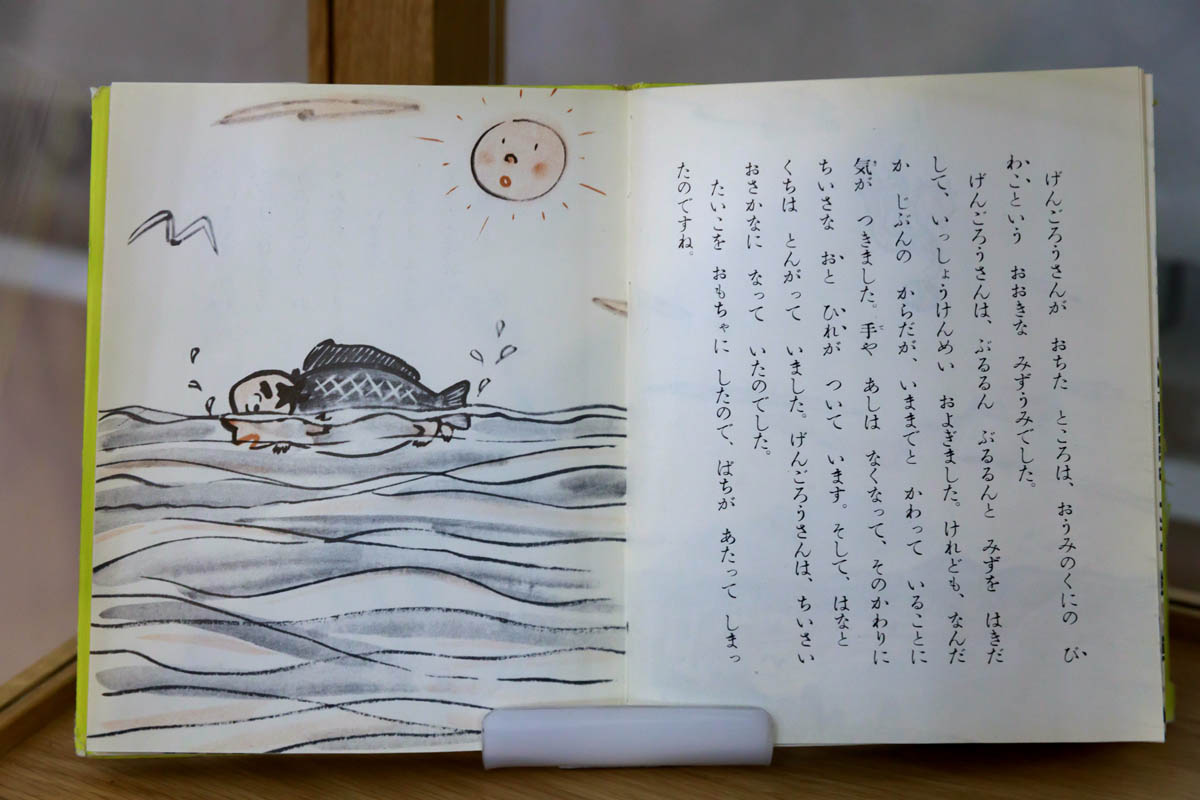 げんごろうさんが　おちた　ところは、おうみのくにの　び
わこという　おおきな　みずうみでした。
げんごろうさんは、ぶるるん　ぶるるんと　みずを　はきだ
して、いっしょうけんめい　およぎました。けれども、なんだ
か　じぶんの　からだが、いままでと　かわって　いることに
気が　つきました。手や　あしは　なくなって、そのかわりに
ちいさな　おと　ひれが　ついて　います。そして、はなと
くちは　とんがって　いました。げんごろうさんは、ちいさい
おさかなに　なって　いたのでした。
たいこを　おもちゃに　したので、ばちが　あたって　しまっ
たのですね。